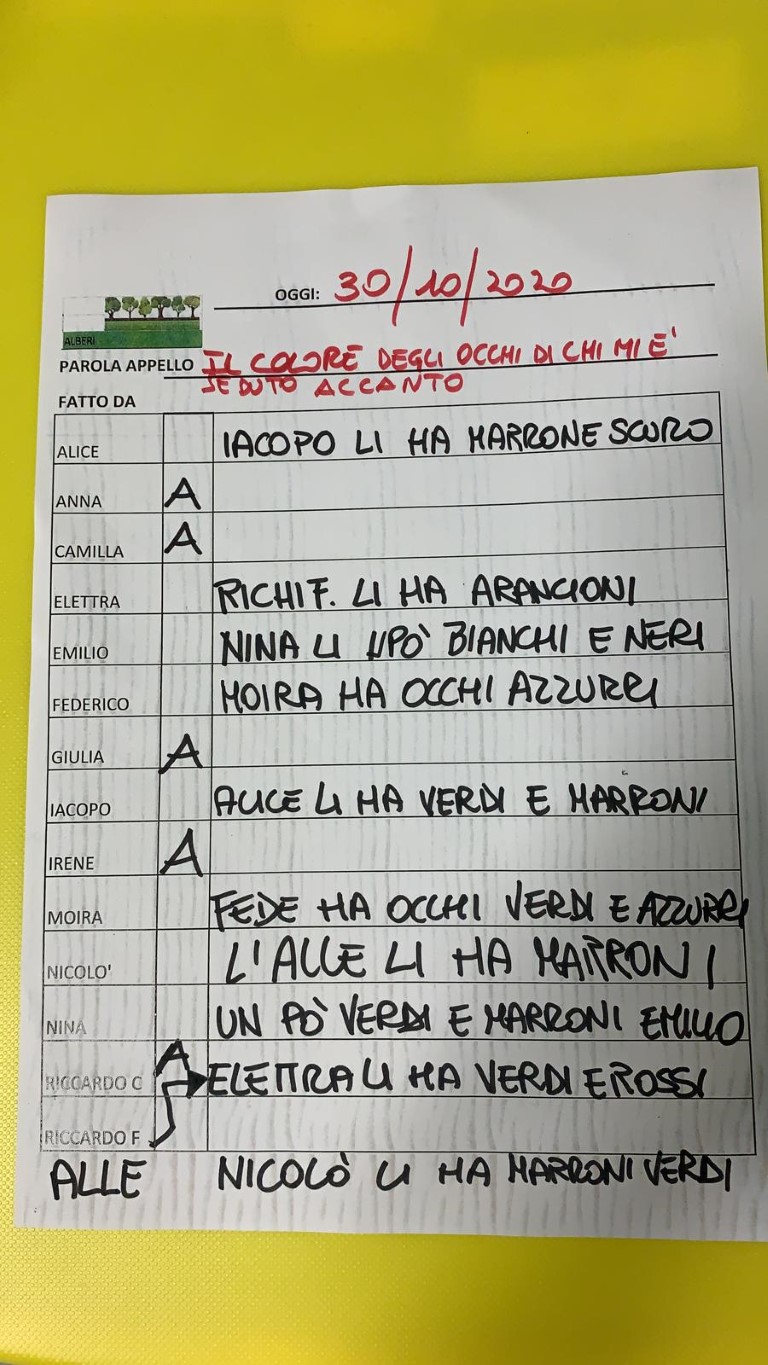 OGGI: 30/10/2020
ALBERI
PAROLA APPELLO IL COLORE DEGLI OCCHI DI CHI MI E'
SEDUTO ACCANTO
FATTO DA
ALICE IACOPO LI HA MARRONE SCURO
ANNA A
CAMILLA A
ELETTRA RICHI F. LI HA ARANCIONI
EMILIO NINA LI UPÒ BIANCHI E NERI
FEDERICO MOIRA HA OCCHI AZZURRI
GIULIA A
IACOPO ALICE LI HA VERDI E MARRONI
IRENE A
MOIRA FEDE HA OCCHI VERDI E AZZURRI
NICOLO' L'ALLE LI HA MARRONI
NINA UN PÒ VERDI E MARRONI EMILIO
RICCARDO C A ELETTRA LI HA VERDI E ROSSI
RICCARDO F
ALLE NICOLÒ LI HA MARRONI VERDI